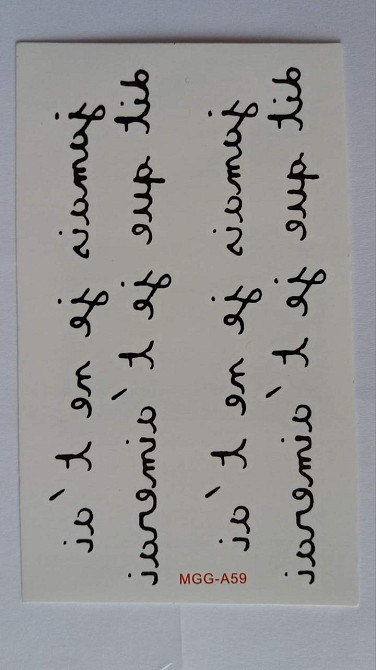 jamais je ne t'ai
dit que je t'aimerai
jamais je ne t'ai
dit que je t'aimerai
MGG-A59